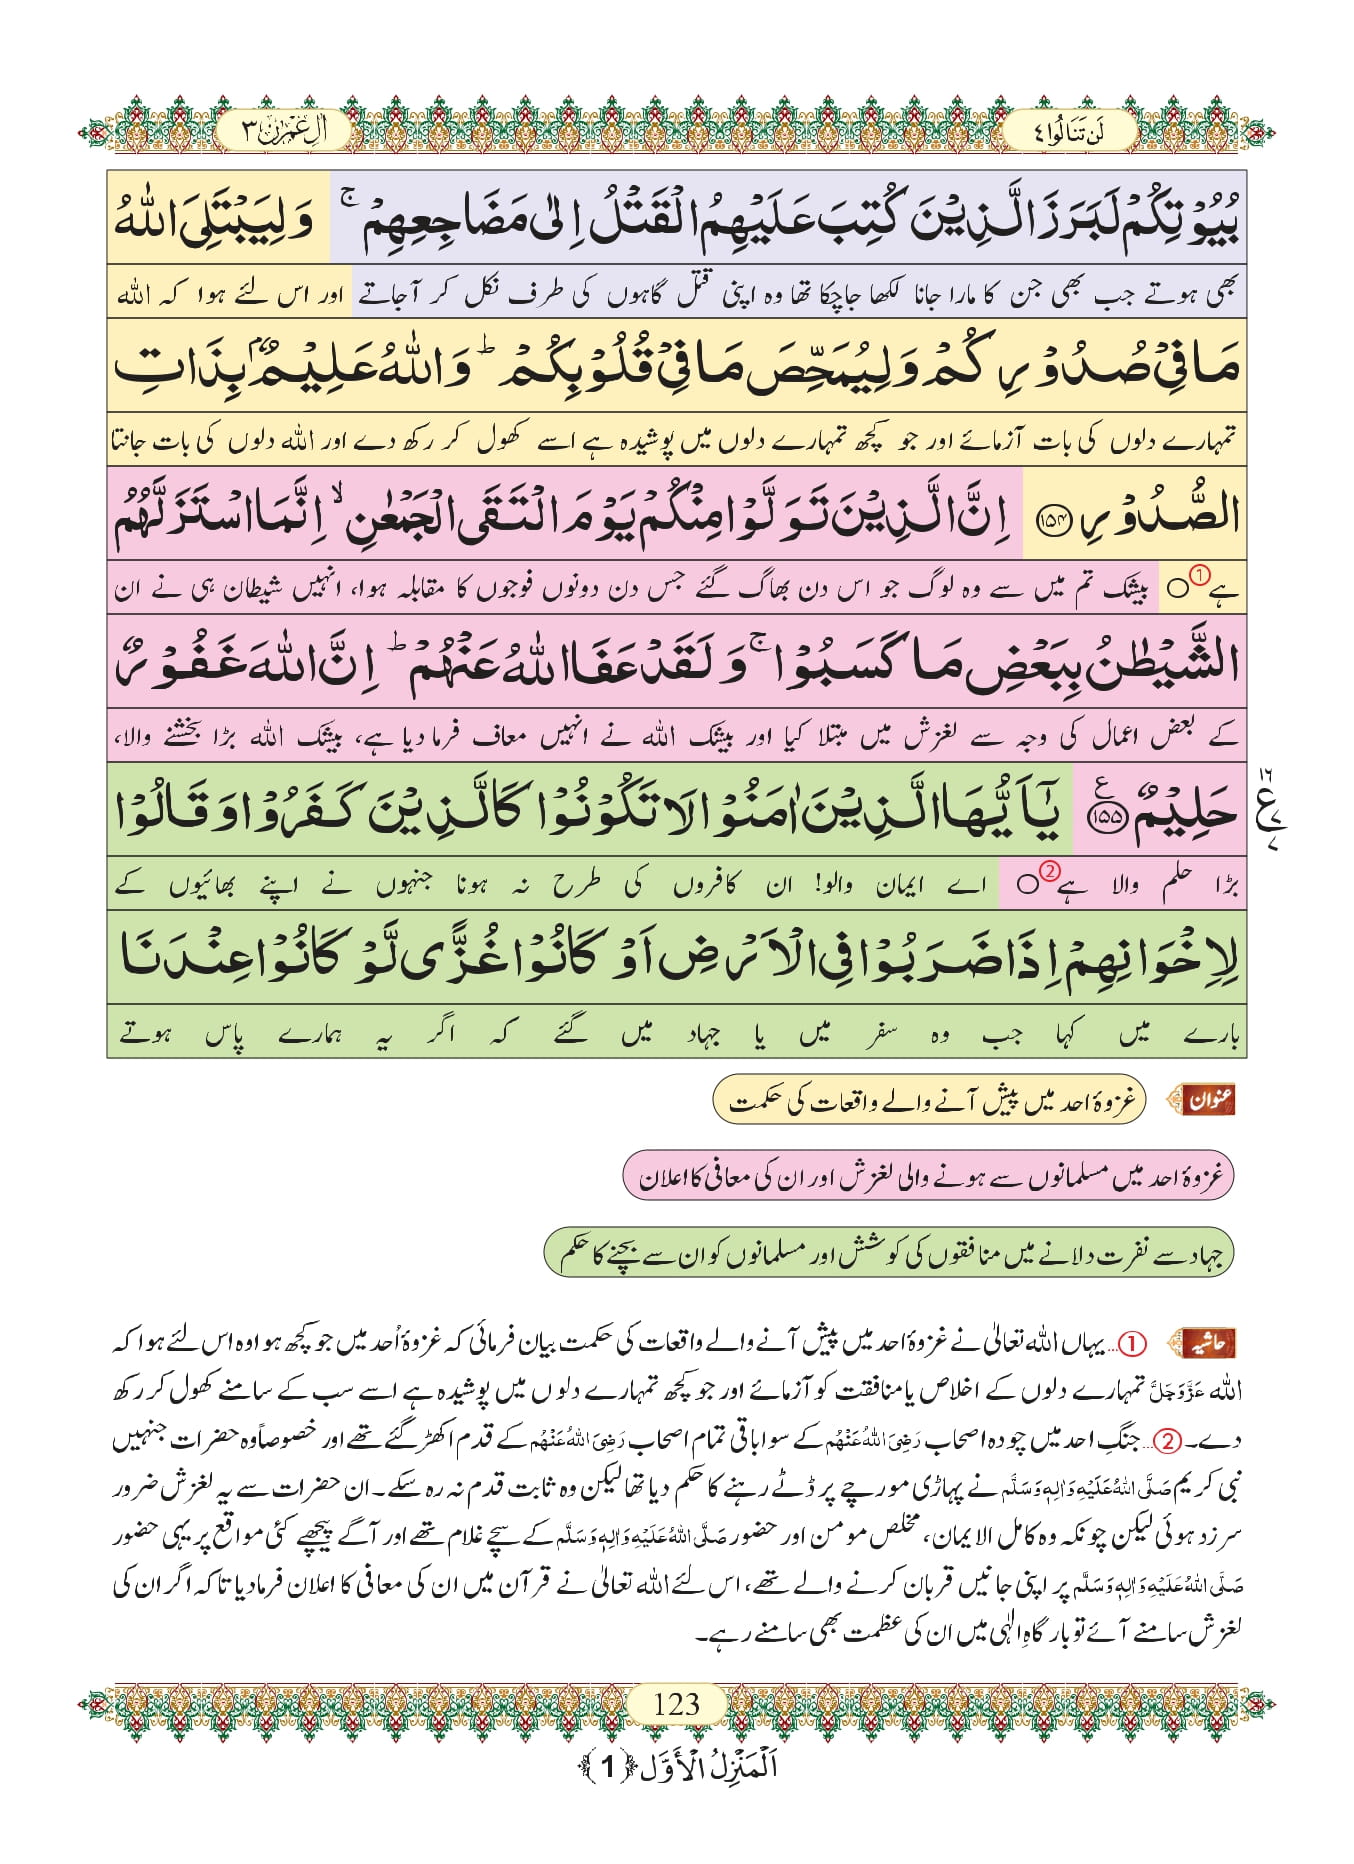 لَنْ تَنَالُوا ٤
اٰلِ عِمْرٰن ٣
بُيُوْتِكُمْ لَبَرَزَ الَّذِيْنَ كُتِبَ عَلَيْهِمُ الْقَتْلُ اِلٰى مَضَاجِعِهِمْ ۚ وَلِيَبْتَلِيَ اللّٰهُ
بھی ہوتے جب بھی جن کا مارا جانا لکھا جاچکا تھا وہ اپنی قتل گاہوں کی طرف نکل کر آجاتے اور اس لئے ہوا کہ اللہ
مَا فِيْ صُدُوْرِكُمْ وَلِيُمَحِّصَ مَا فِيْ قُلُوْبِكُمْ ؕ وَاللّٰهُ عَلِيْمٌۢ بِذَاتِ
تمہارے دلوں کی بات آزمائے اور جو کچھ تمہارے دلوں میں پوشیدہ ہے اسے کھول کر رکھ دے اور اللہ دلوں کی بات جانتا
الصُّدُوْرِ ﴿۱۵۴﴾ اِنَّ الَّذِيْنَ تَوَلَّوْا مِنْكُمْ يَوْمَ الْتَقَى الْجَمْعٰنِ ۙ اِنَّمَا اسْتَزَلَّهُمُ
ہے① ○ بیشک تم میں سے وہ لوگ جو اس دن بھاگ گئے جس دن دونوں فوجوں کا مقابلہ ہوا، انہیں شیطان ہی نے ان
الشَّيْطٰنُ بِبَعْضِ مَا كَسَبُوْا ۚ وَلَقَدْ عَفَا اللّٰهُ عَنْهُمْ ؕ اِنَّ اللّٰهَ غَفُوْرٌ
کے بعض اعمال کی وجہ سے لغزش میں مبتلا کیا اور بیشک اللہ نے انہیں معاف فرما دیا ہے، بیشک اللہ بڑا بخشنے والا،
حَلِيْمٌ ﴿۱۵۵﴾ ع يٰۤاَيُّهَا الَّذِيْنَ اٰمَنُوْا لَا تَكُوْنُوْا كَالَّذِيْنَ كَفَرُوْا وَقَالُوْا
۱۶ ع ۷ ۷
بڑا حلم والا ہے② ○ اے ایمان والو! ان کافروں کی طرح نہ ہونا جنہوں نے اپنے بھائیوں کے
لِاِخْوَانِهِمْ اِذَا ضَرَبُوْا فِي الْاَرْضِ اَوْ كَانُوْا غُزًّى لَّوْ كَانُوْا عِنْدَنَا
بارے میں کہا جب وہ سفر میں یا جہاد میں گئے کہ اگر یہ ہمارے پاس ہوتے
عنوان غزوۂ احد میں پیش آنے والے واقعات کی حکمت
غزوۂ احد میں مسلمانوں سے ہونے والی لغزش اور ان کی معافی کا اعلان
جہاد سے نفرت دلانے میں منافقوں کی کوشش اور مسلمانوں کو ان سے بچنے کا حکم
حاشیہ ①...یہاں اللہ تعالیٰ نے غزوۂ احد میں پیش آنے والے واقعات کی حکمت بیان فرمائی کہ غزوۂ اُحد میں جو کچھ ہوا وہ اس لئے ہوا کہ
اللہ عَزَّوَجَلَّ تمہارے دلوں کے اخلاص یا منافقت کو آزمائے اور جو کچھ تمہارے دلوں میں پوشیدہ ہے اسے سب کے سامنے کھول کر رکھ
دے۔ ②...جنگِ احد میں چودہ اصحاب رَضِیَ اللہُ عَنْہُم کے سوا باقی تمام اصحاب رَضِیَ اللہُ عَنْہُم کے قدم اکھڑ گئے تھے اور خصوصاً وہ حضرات جنہیں
نبی کریم صَلَّی اللہُ عَلَیْہِ وَاٰلِہٖ وَسَلَّم نے پہاڑی مورچے پر ڈٹے رہنے کا حکم دیا تھا لیکن وہ ثابت قدم نہ رہ سکے۔ ان حضرات سے یہ لغزش ضرور
سرزد ہوئی لیکن چونکہ وہ کامل الایمان، مخلص مومن اور حضور صَلَّی اللہُ عَلَیْہِ وَاٰلِہٖ وَسَلَّم کے سچے غلام تھے اور آگے پیچھے کئی مواقع پر یہی حضور
صَلَّی اللہُ عَلَیْہِ وَاٰلِہٖ وَسَلَّم پر اپنی جانیں قربان کرنے والے تھے، اس لئے اللہ تعالیٰ نے قرآن میں ان کی معافی کا اعلان فرمادیا تاکہ اگر ان کی
لغزش سامنے آئے تو بارگاہِ الٰہی میں ان کی عظمت بھی سامنے رہے۔
123
اَلْمَنْزِلُ الْاَوَّل ﴿1﴾